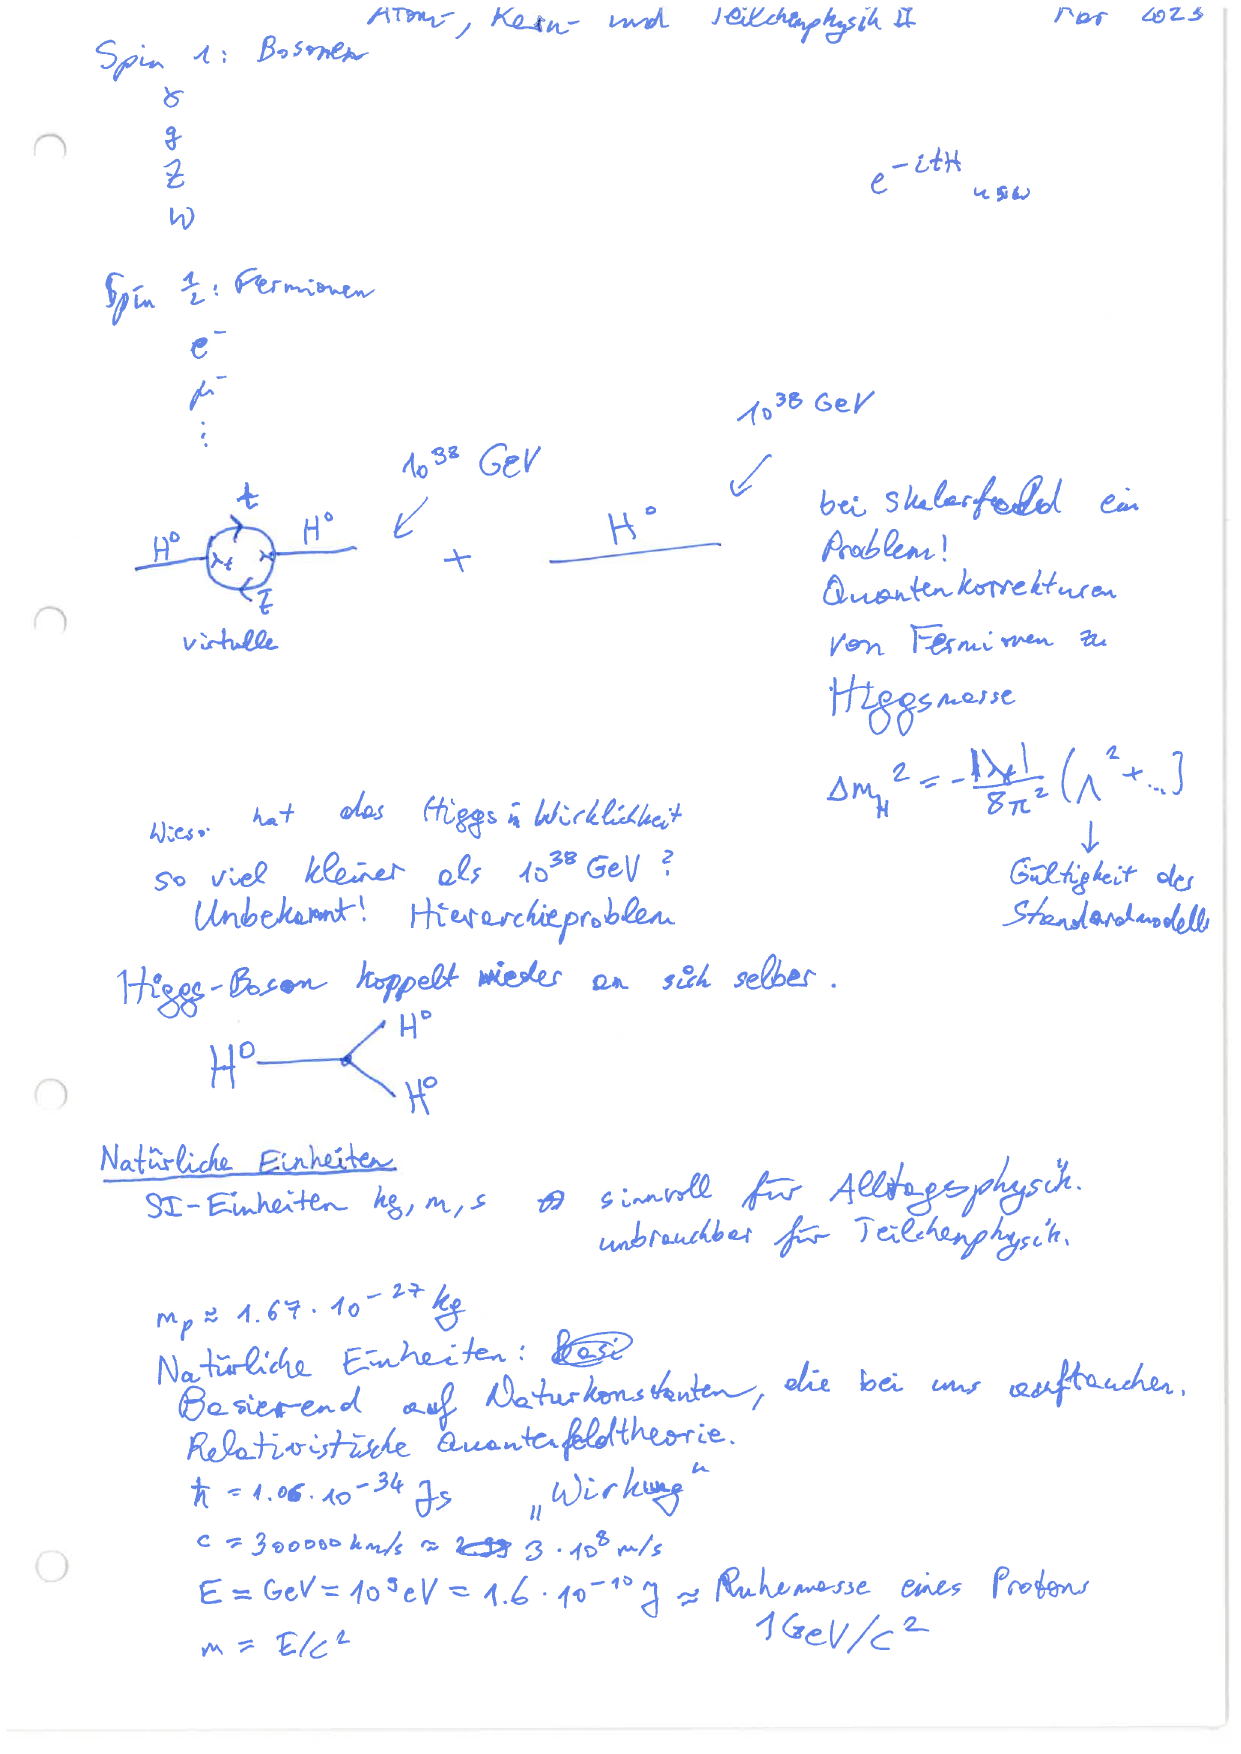 Atom-, Kern- und Teilchenphysik II Mar 2023
Spin 1: Bosonen
γ
g
Z
W
e^{-itH} usw
Spin 1/2: Fermionen
e⁻
μ⁻
⋮
10^{38} GeV
10^{38} GeV
t
H⁰ λ_t H⁰ + H⁰
t̄
virtuelle
bei Skalarfeld ein
Problem!
Quantenkorrekturen
von Fermionen zu
Higgsmasse
Δm_H² = -|λ_f|/8π² (Λ² + ...]
↓
Gültigkeit des
Standardmodells
Wieso hat das Higgs in Wirklichkeit
so viel kleiner als 10^{38} GeV?
Unbekannt! Hierarchieproblem
Higgs-Boson koppelt wieder an sich selber.
H⁰
H⁰
H⁰
Natürliche Einheiten
SI-Einheiten kg, m, s sinnvoll für Alltagsphysik.
unbrauchbar für Teilchenphysik.
m_p ≈ 1.67 · 10^{-27} kg
Natürliche Einheiten:
Basierend auf Naturkonstanten, die bei uns auftauchen.
Relativistische Quantenfeldtheorie.
ħ = 1.06 · 10^{-34} Js „Wirkung“
c = 300000 km/s ≈ 3 · 10⁸ m/s
E = GeV = 10⁹ eV = 1.6 · 10^{-10} J ≈ Ruhemasse eines Protons
1 GeV/c²
m = E/c²